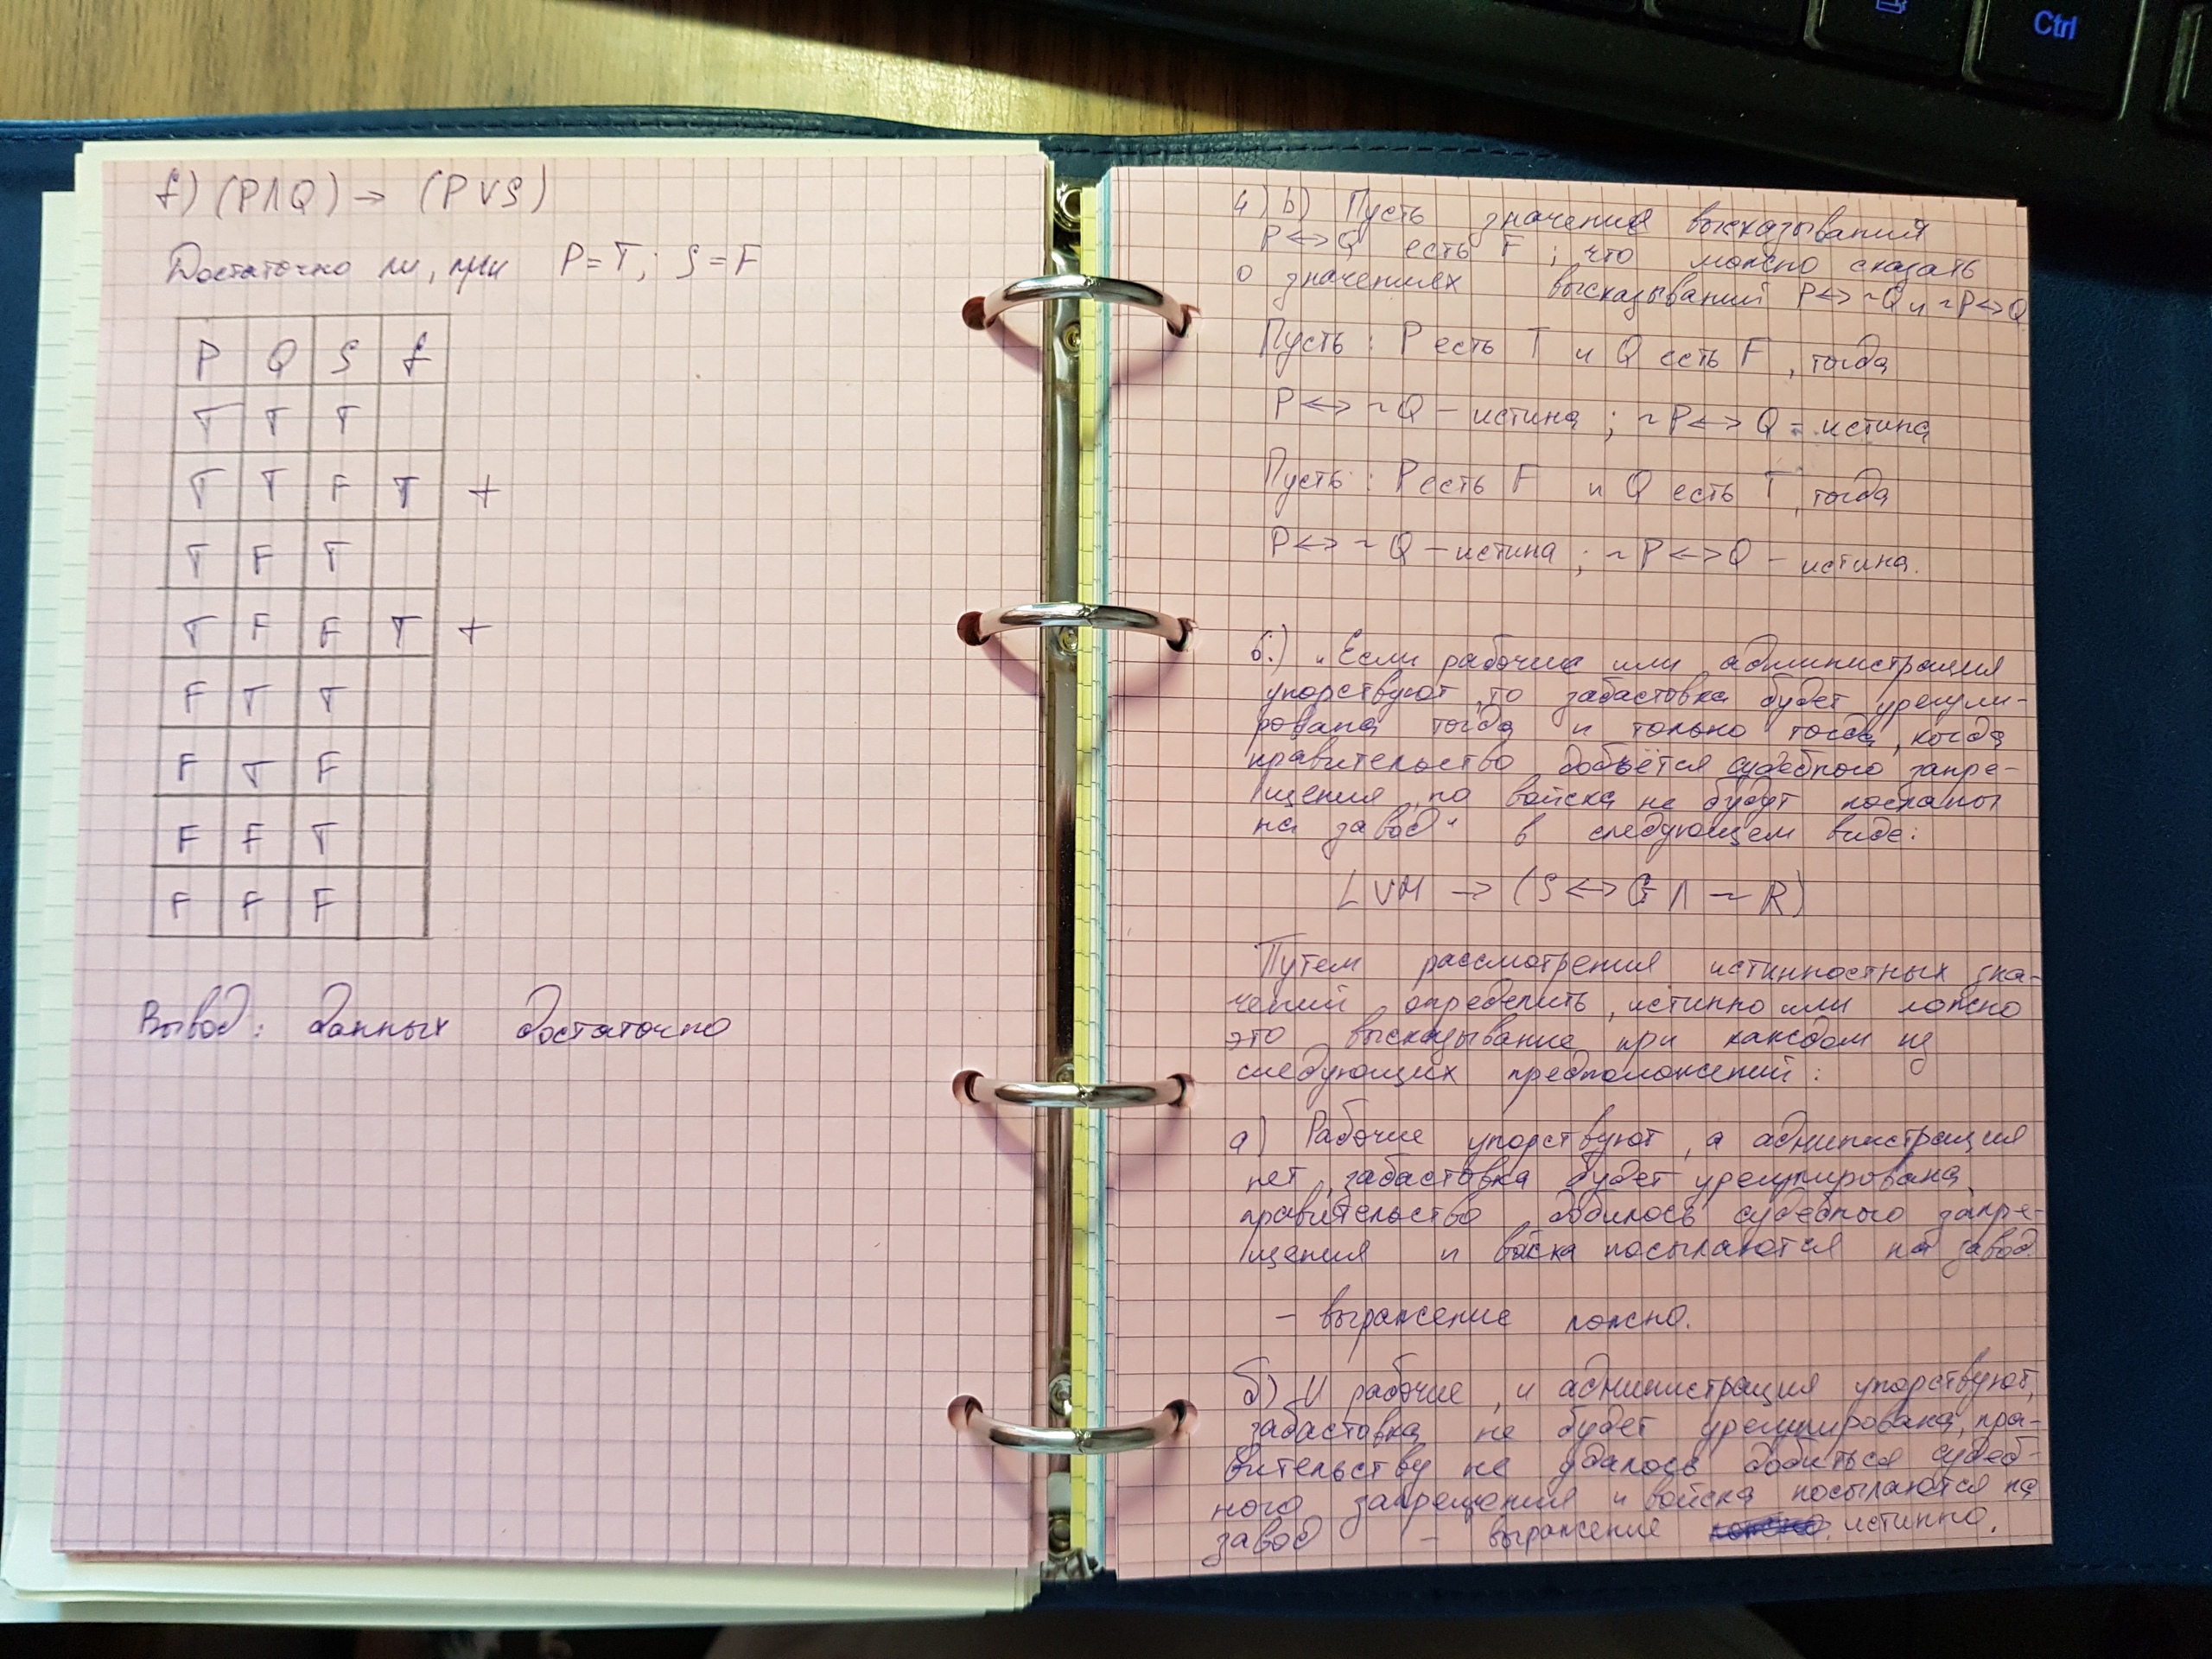 Ctrl
f) (P∧Q) → (P∨S)
Достаточно ли, при P=T; S=F
P Q S f
T T T
T T F T +
T F T
T F F T +
F T T
F T F
F F T
F F F
Вывод: данных достаточно
4) b) Пусть значения высказывания
P↔Q есть F; что можно сказать
о значениях высказываний P↔~Q и ~P↔Q
Пусть: P есть T и Q есть F, тогда
P↔~Q – истина; ~P↔Q – истина
Пусть: P есть F и Q есть T, тогда
P↔~Q – истина; ~P↔Q – истина.
6.) „Если рабочие или администрация
упорствуют, то забастовка будет урегули-
рована тогда и только тогда, когда
правительство добьётся судебного запре-
щения, но войска не будут посланы
на завод“ в следующем виде:
L∨M → (S↔G∧~R)
Путем рассмотрения истинностных зна-
чений определить, истинно или ложно
это высказывание при каждом из
следующих предположений:
а) Рабочие упорствуют, а администрация
нет, забастовка будет урегулирована,
правительство добилось судебного запре-
щения и войска посылаются на завод.
– выражение ложно.
б) И рабочие, и администрация упорствуют,
забастовка не будет урегулирована, пра-
вительству не удалось добиться судеб-
ного запрещения и войска посылаются на
завод – выражение истинно.